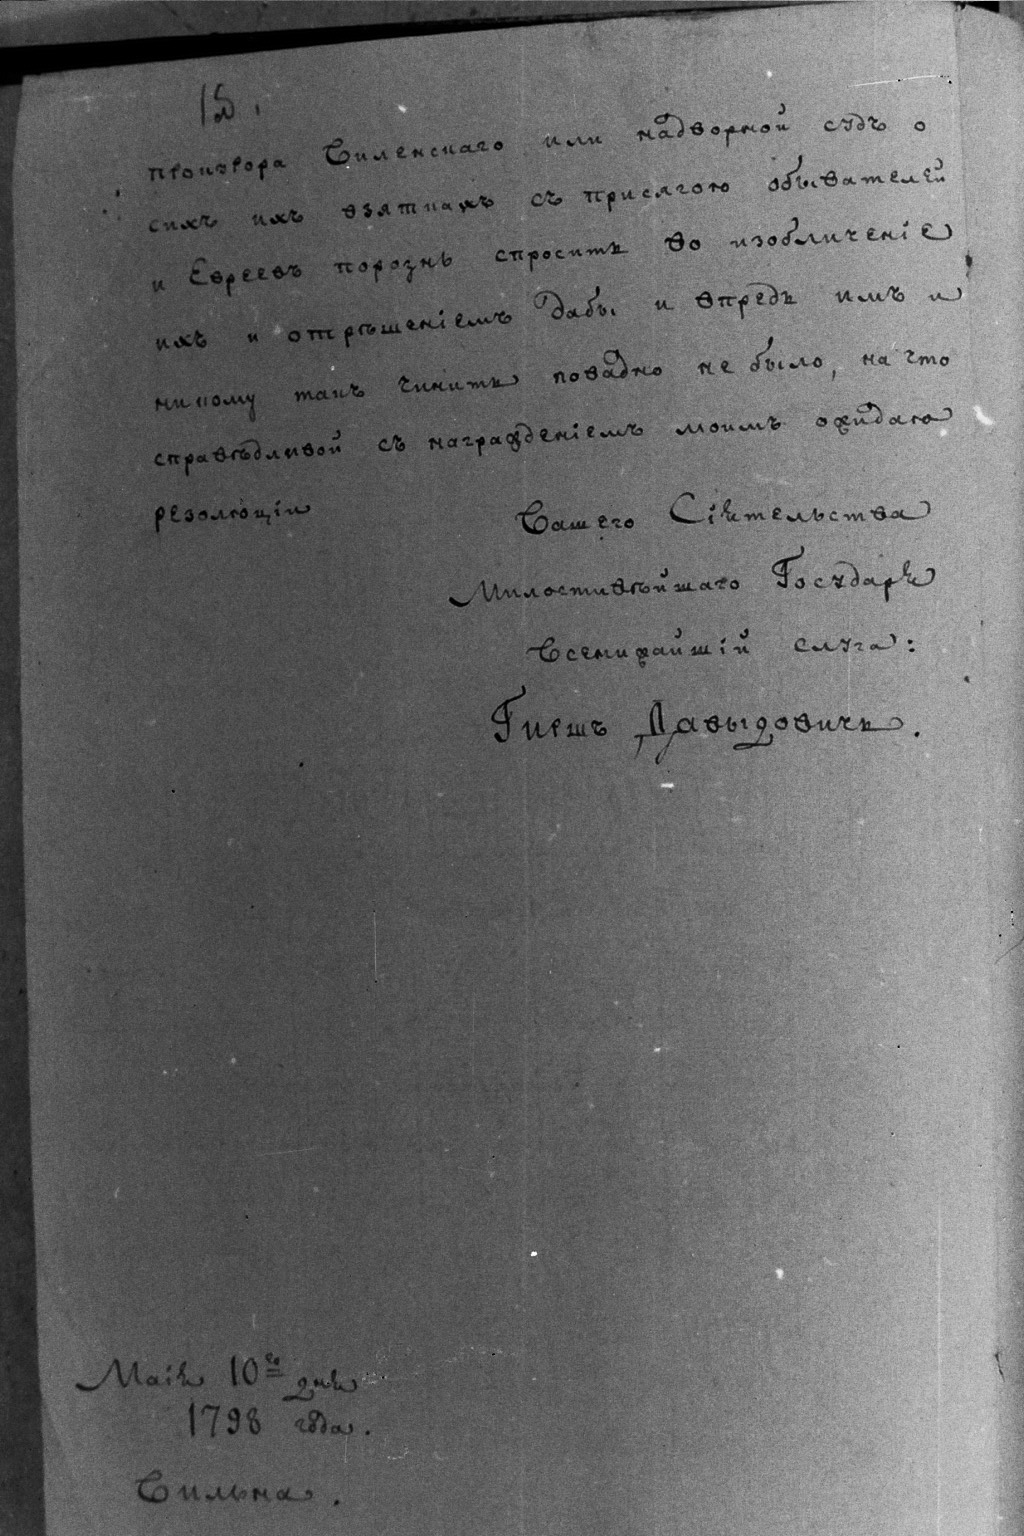 провизора Виленскаго или надворной судъ о
сихъ ихъ взяткахъ съ присягою обывателей
и Евреевъ порознь спросить во изобличенiе
ихъ и отрѣшенiемъ дабы и впредь имъ и
никому такъ чинить повадно не было, на что
справѣдливой съ награжденiемъ моимъ ожидаю
резолюцiи
Вашего Сiятельства
Милостивѣйшаго Государя
Всенижайшiй слуга:
Гиршъ Давыдовичь.
Маiя 10го дня
1798 года.
Вильна.